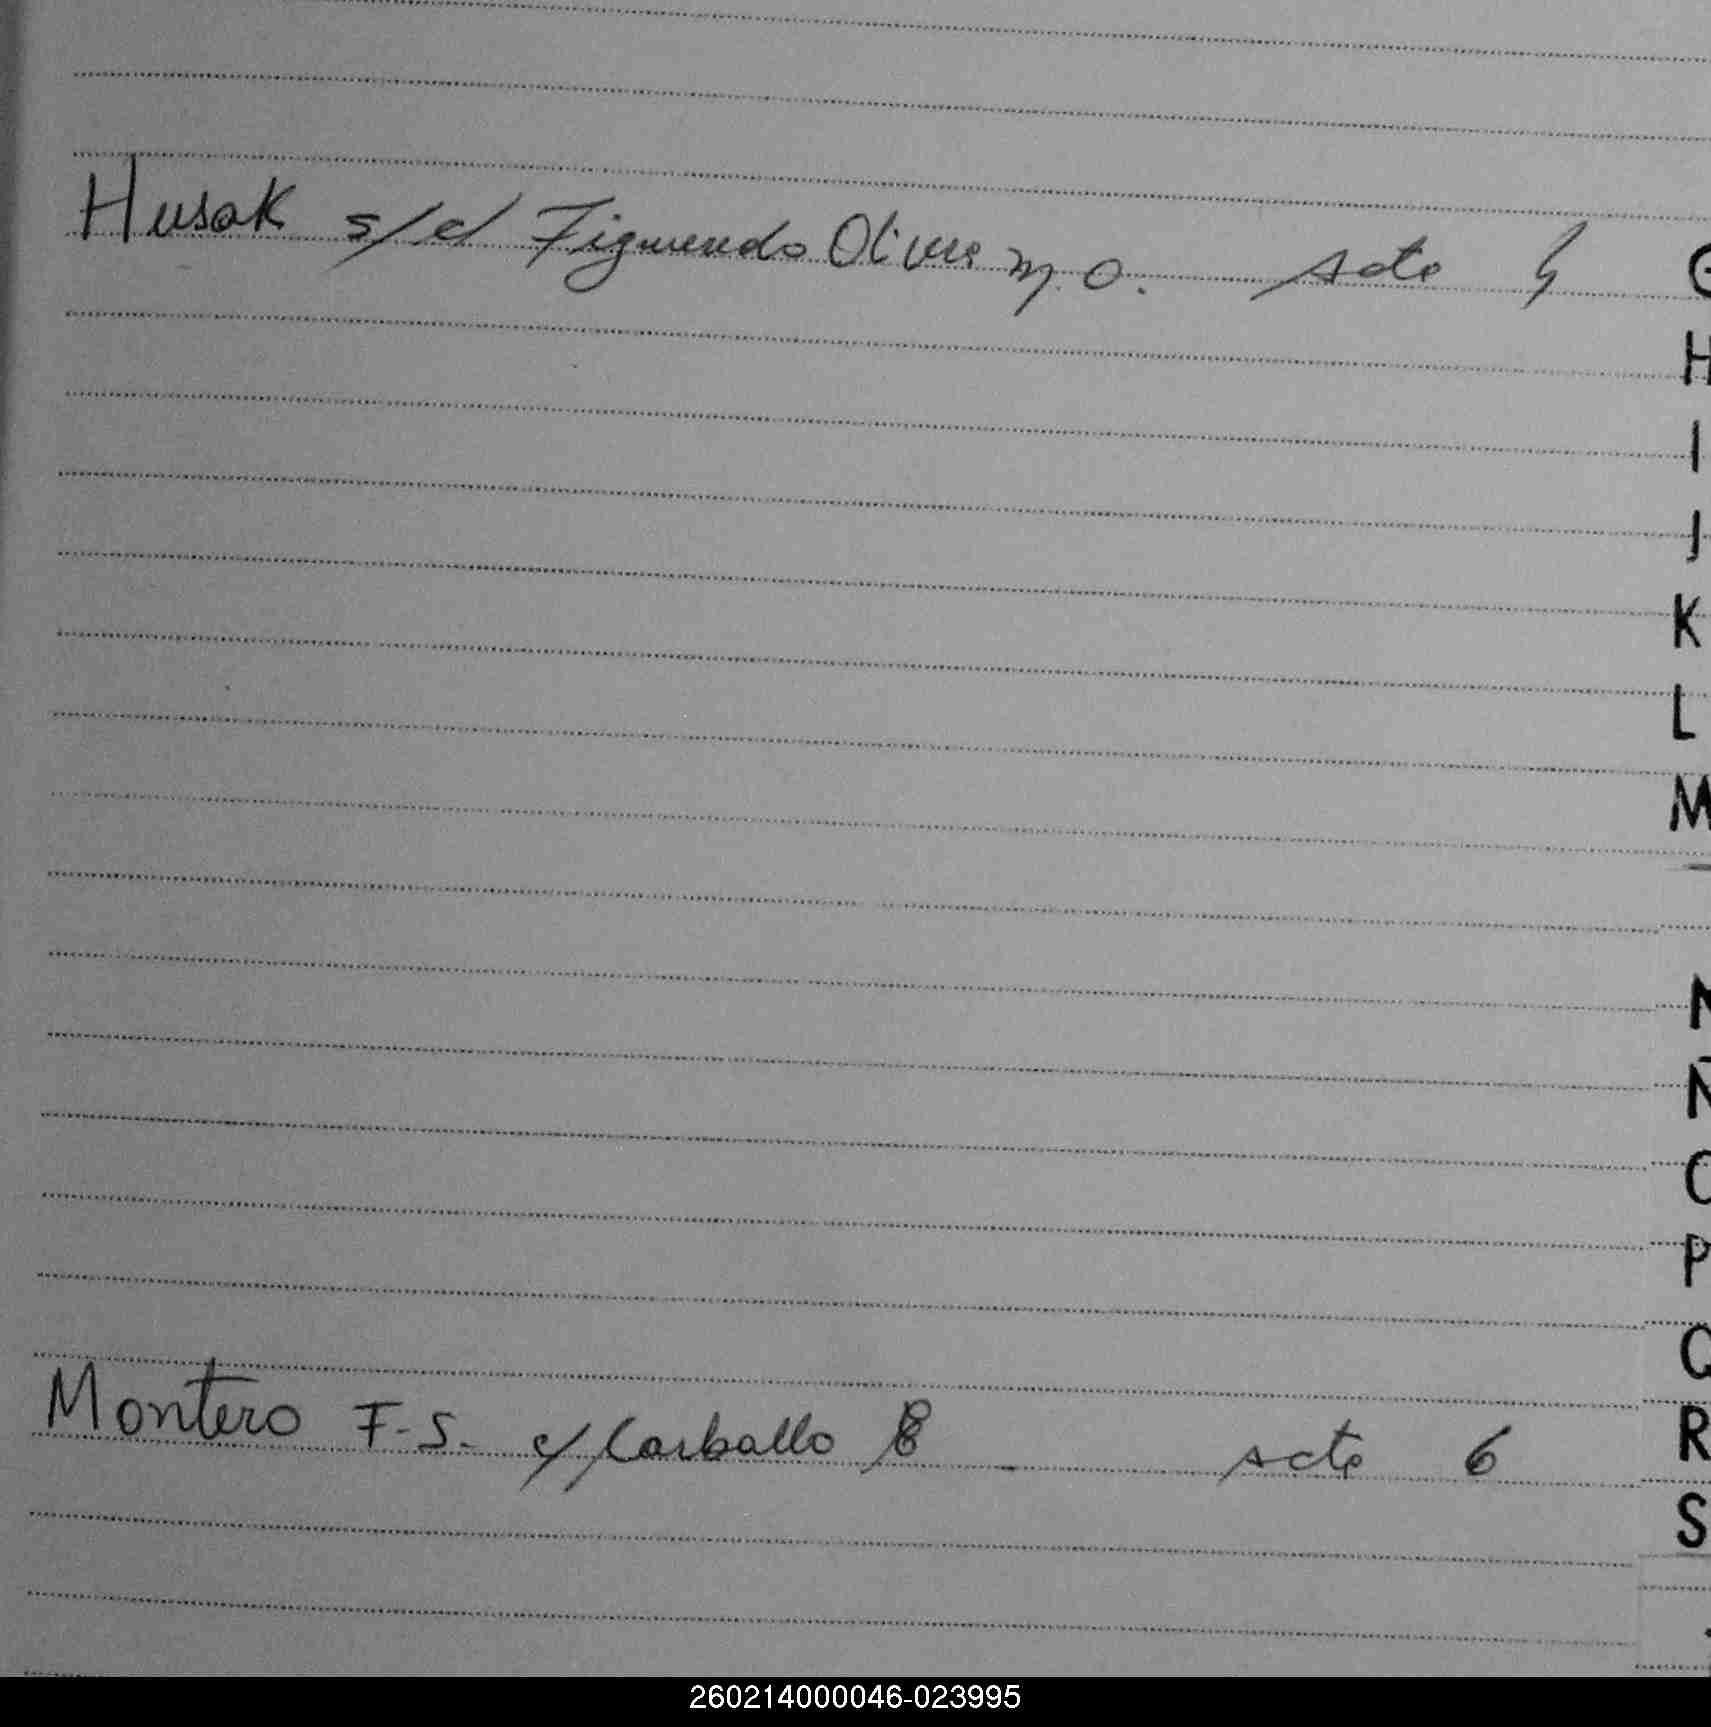 Husak s/c/ Figueredo Olivera M. O. Acta 4
G
H
I
J
K
L
M
N
Ñ
O
P
Q
Montero F.S. c/ Carballo B Acta 6
R
S
260214000046-023995